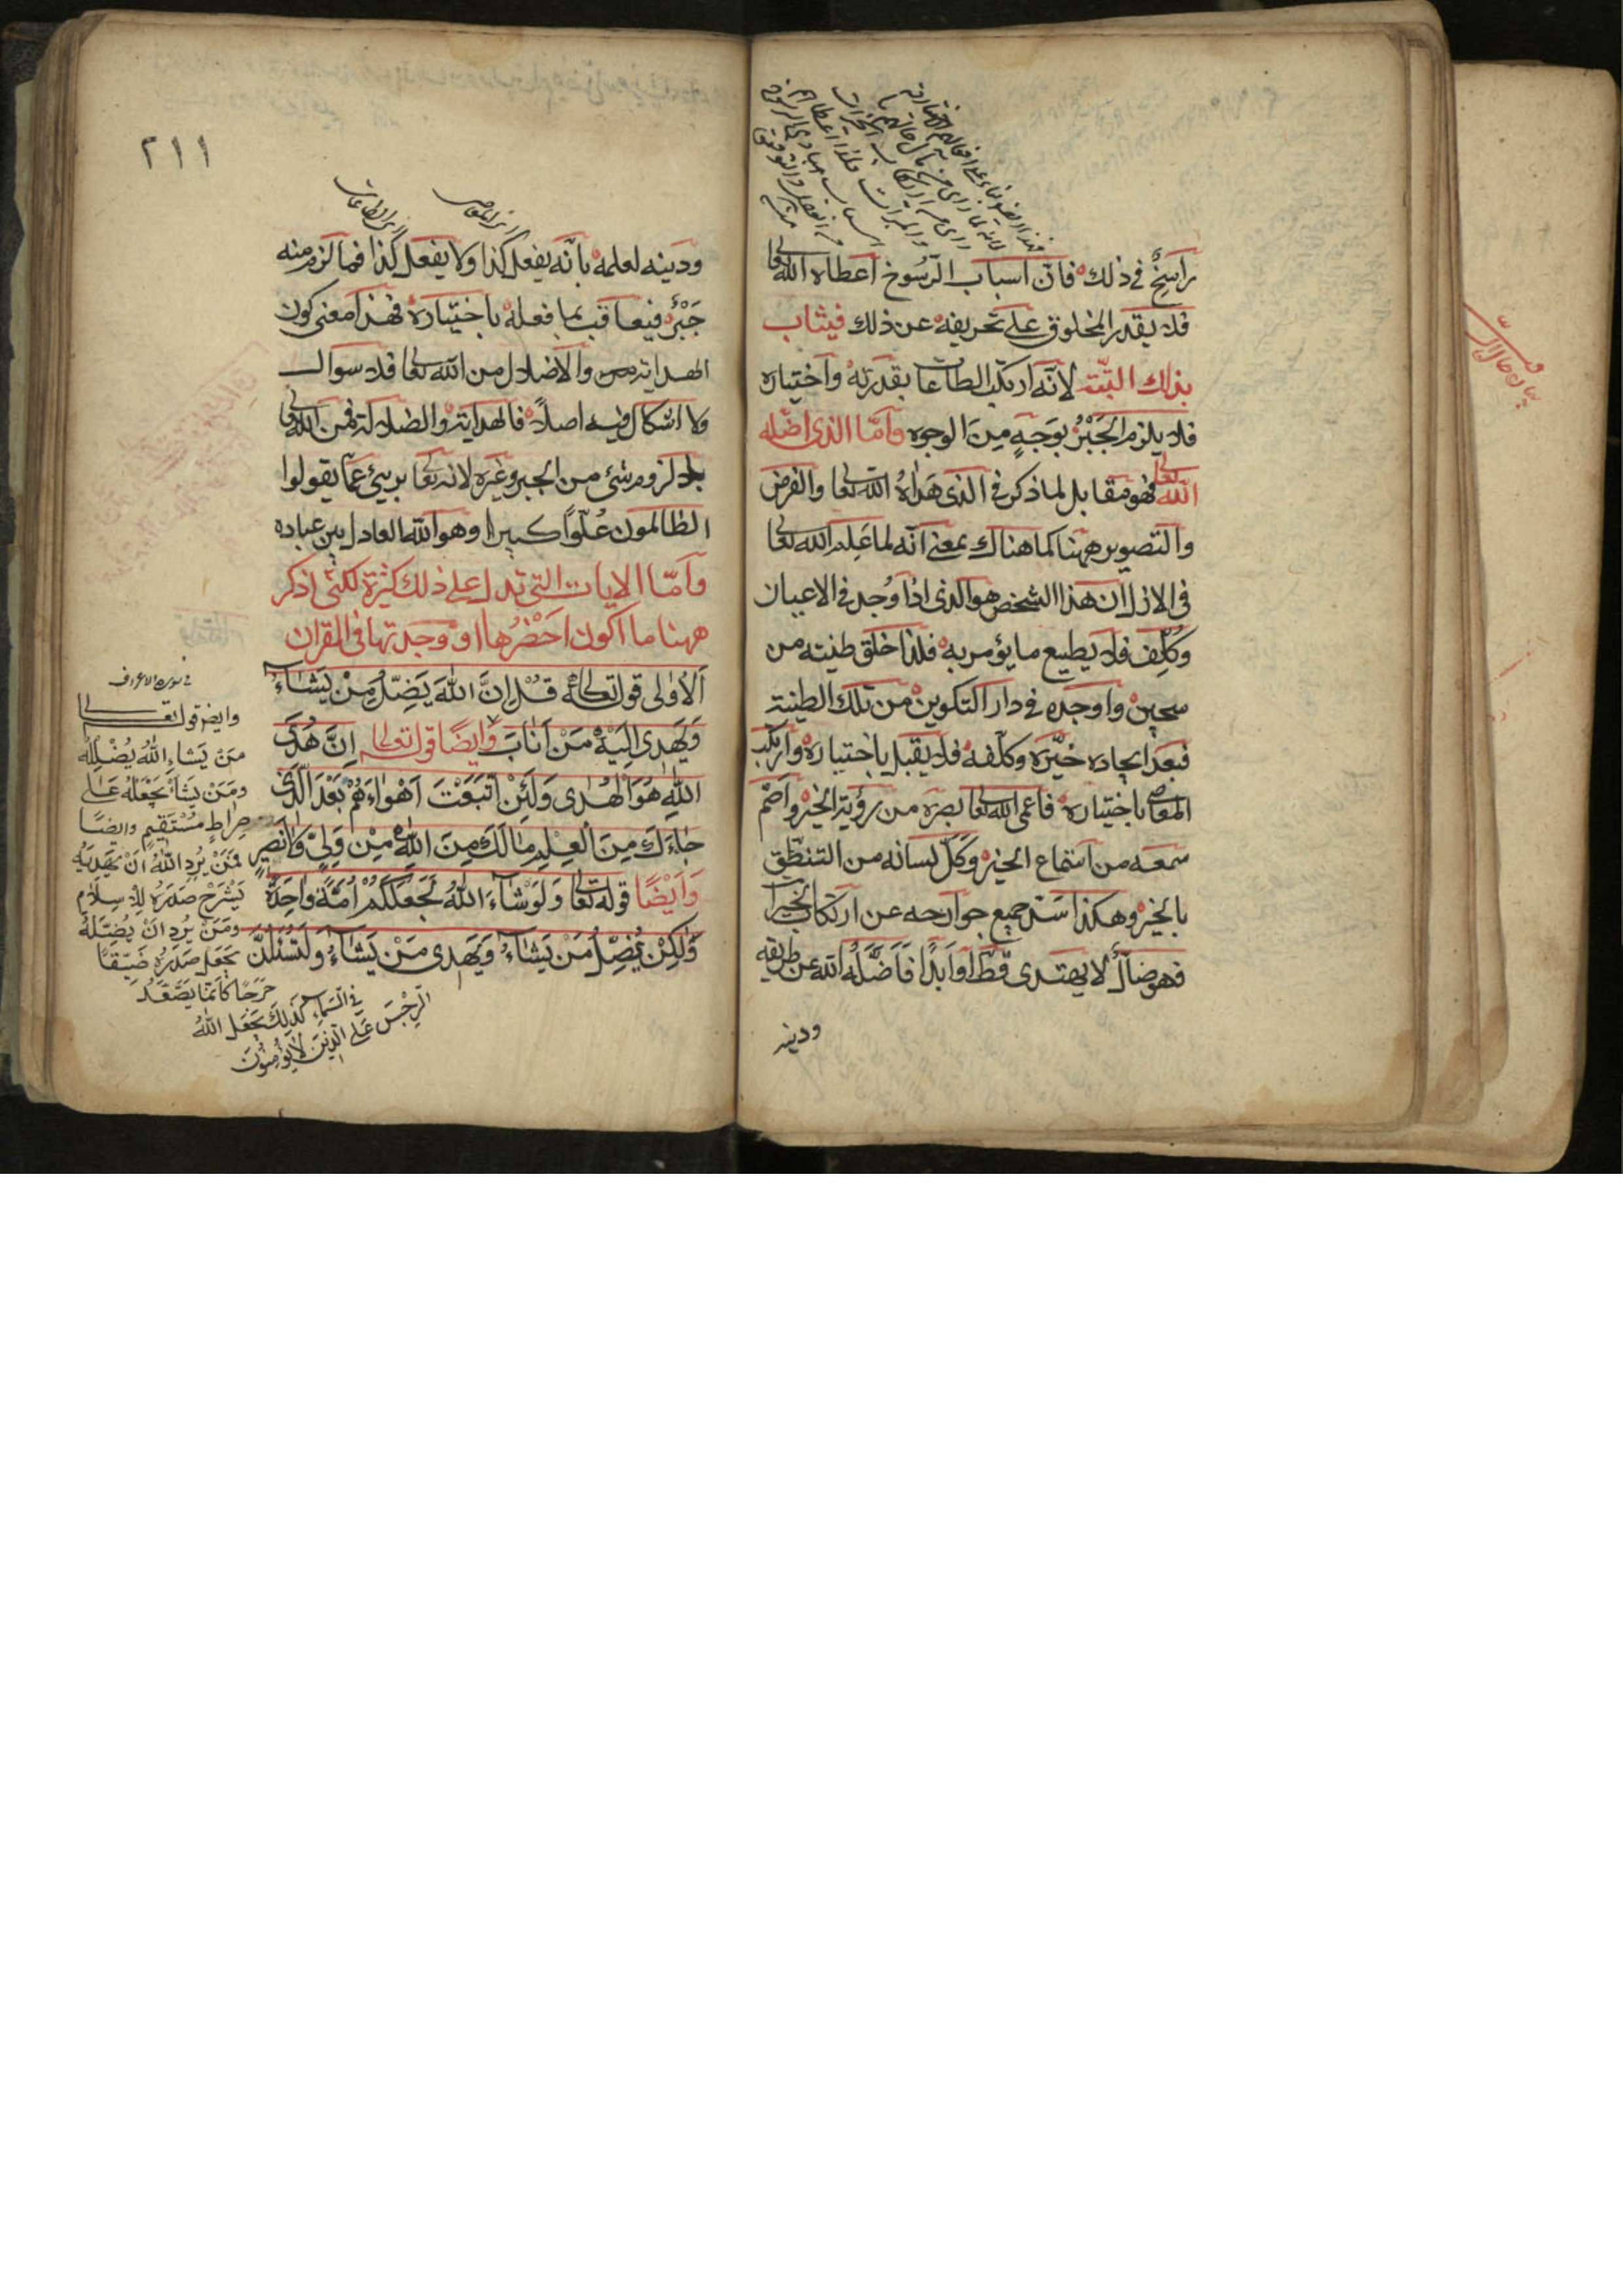 راسخٌ في ذلك فان اسباب الرّسوخ اعطاه الله تعا
فلا يقدر المخلوق على تحريفه عن ذلك فيثاب
بذلك البتّة لانّه ارتكب الطاعات بقدرته واختياره
فلا يلزم الجَبْرُ بوَجهٍ مِنَ الوجوه وامّا الذى اضلّه
الله تعالى فهو مقابل لما ذكر فى الذى هَداهُ الله تعا والفرض
والتصوير ههنا كما هناك بمعنى انّه لما عَلِمَ الله تعا
فى الازل ان هذا الشخص هو الذى اذا وُجد فى الاعيان
وكُلِّف فلا يطيع ما يؤمر به فلذا خلق طينته من
سجين واوجده فى دار التكوين من تلك الطينة
فبعد ايجاده خيّره وكلّفه فلا يقبل باختياره وارتكب
المعاصى باختياره فاعمى الله تعا بصره من رؤية الخير واصّم
سمعه من استماع الخير وكَلّ لسانه من التنطّق
بالخير وهكذا سَدّ جميع جوارحه عن ارتكاب الخيرات
فهو ضآلٌ لا يهتدى قطّا وابدًا فَاَضَلَّهُ الله عن طريقه
ودينه
٢١١
ودينه لعلمه بانّه يفعل كذا ولا يفعل كذا فما لزم منه
جَبْرٌ فيعاقب بما فعله باختياره فهذا معنى كون
الهداية والاضلال من الله تعا فلا سوال
ولا اشكال فيه اصلاً فالهداية والضلالة فمن الله تعا
بلا لزوم شئ من الجبر وغيره لانه تعا برئ عمّا يقولوا
الظالمون عُلوّاً كبيرا وهو الله العادل بين عباده
وامّا الايات التى تدل على ذلك كثيرة لكنّى اذكر
ههنا ما اكون احضرها او وجدتها فى القران
اَلاُولى قوله تعالى قُلْ اِنَّ اللهَ يَضِلُّ مَنْ يَشَاءُ
وَيَهدى اِلَيْهِ مَنْ اَنَابَ وَاَيضًا قوله تعالى اِنَّ هُدَى
اللهِ هُوَ الْهُدى وَلَئِنْ اتَّبَعْتَ اَهْواءَهُمْ بَعْدَ الَّذى
جاءَكَ مِنَ الْعِلْمِ مالَكَ مِنَ اللهِ مِنْ وَلِىٍّ وَلا نَصيرٍ
وَاَيْضًا قوله تعا وَلَوْ شاءَ اللهُ لَجَعَلَكُمْ اُمَّةً واحِدَةً
وَلكِنْ يُضِلُّ مَنْ يَشاءُ وَيَهدى مَنْ يَشاءُ وَلَتُسْئَلُنَّ
فى سورة الاعراف
وايضا قوله تعالى
مَنْ يَشاءِ اللهُ يُضْلِلْهُ
ومَنْ يَشَأْ يَجْعَلْهُ عَلى
صِراطٍ مُسْتَقيمٍ وايضًا
فَمَنْ يُرِدِ اللهُ اَنْ يَهْدِيَهُ
يَشْرَحْ صَدْرَهُ لِلْاِسلامِ
ومَنْ يُرِدْ اَنْ يُضِلَّهُ
يَجعَل صَدرَهُ ضَيِّقًا
حَرَجًا كَاَنَّما يَصَّعَّدُ
فى السَّماءِ كَذلِكَ يَجعَل اللهُ
الرِّجْسَ عَلى الَّذينَ لا يُؤمِنُونَ